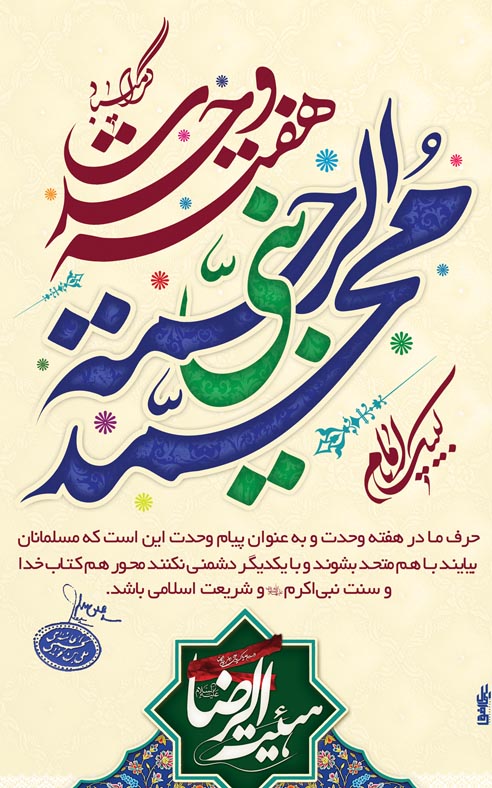 هفته وحدت
گرامی باد
محمد نبی الرحمة
لبیک یا امام
حرف ما در هفته وحدت و به عنوان پیام وحدت این است که مسلمانان
بیایند با هم متحد بشوند و با یکدیگر دشمنی نکنند محور هم کتاب خدا
و سنت نبی‌اکرم ﷺ و شریعت اسلامی باشد.
هیئت الرضا
علیه السلام